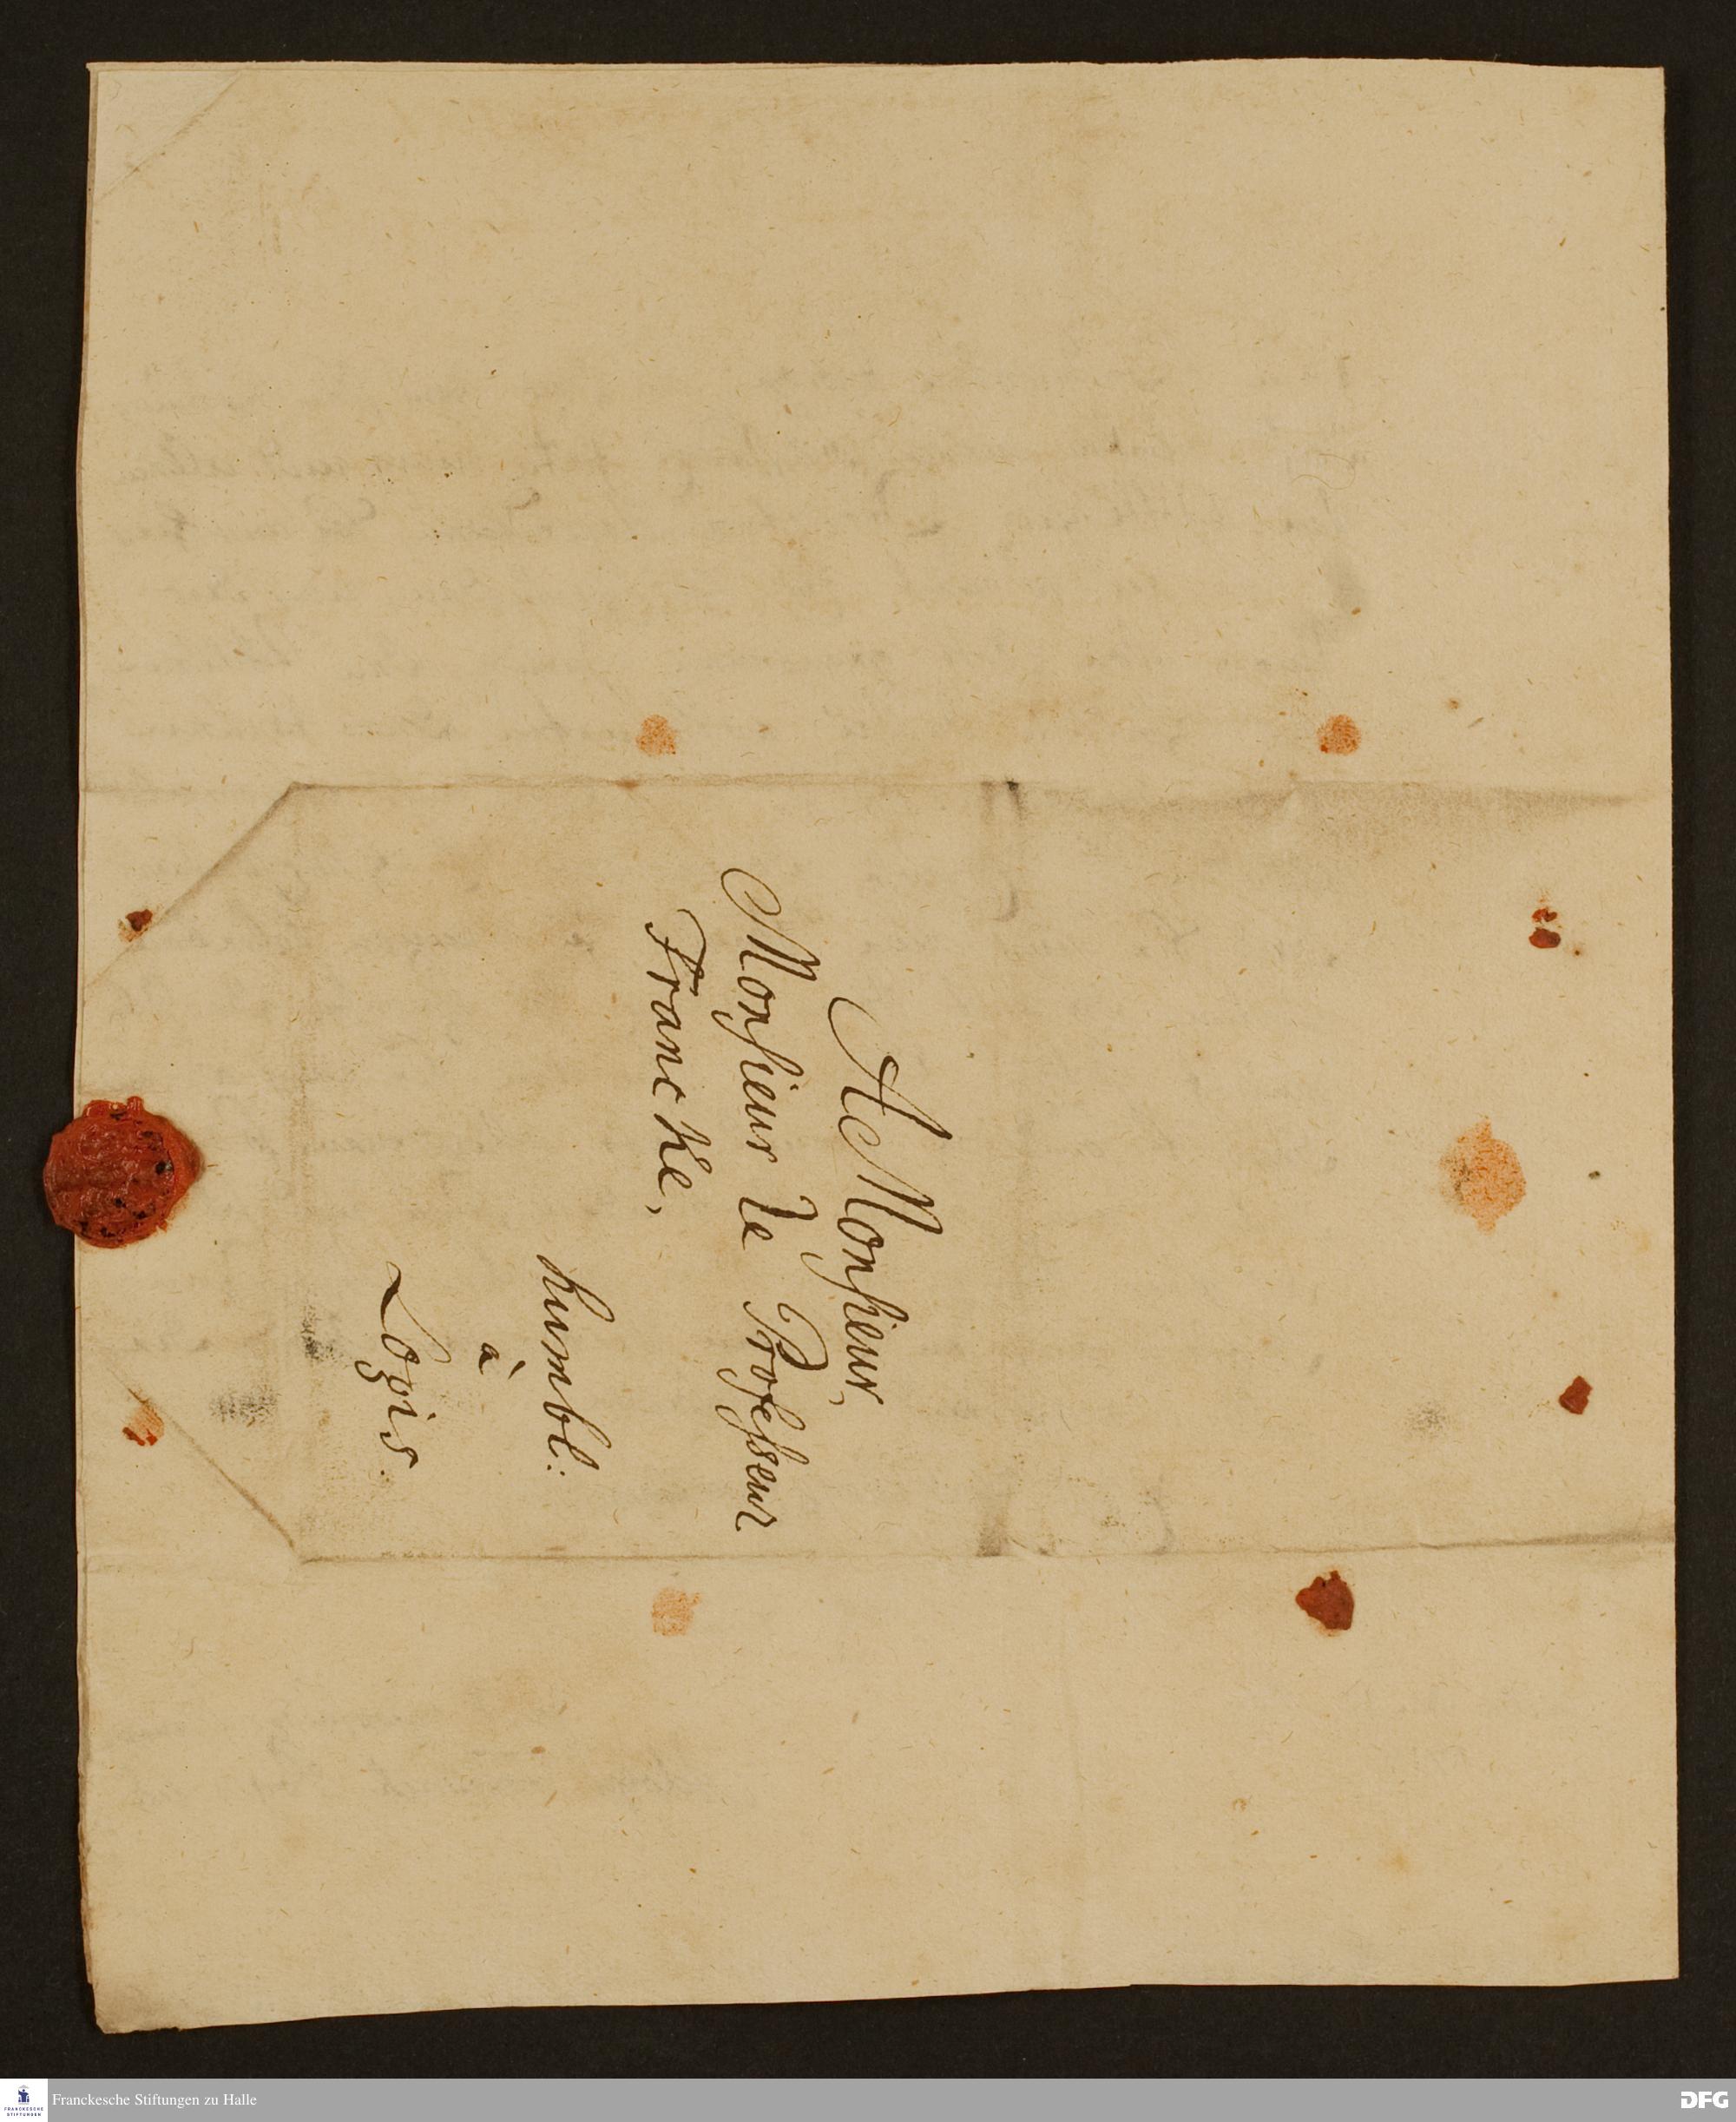 A Monsieur,
Monsieur de Professeur
Francke,
humbl:
à
Logis.
Franckesche Stiftungen zu Halle
FRANCKESCHE
STIFTUNGEN
DFG